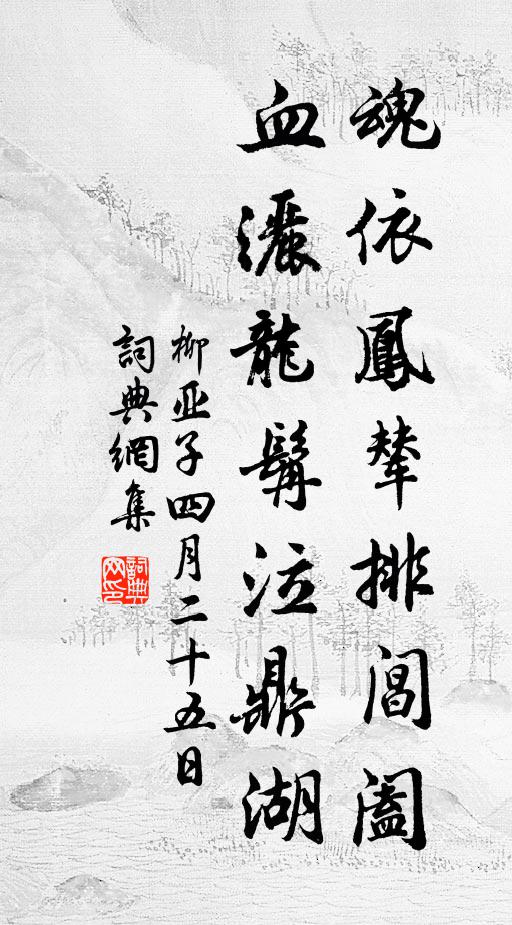 魂依鳳輦排閶闔
血灑龍髯泣鼎湖
柳亚子四月二十五日
詞典網集
詞典网印